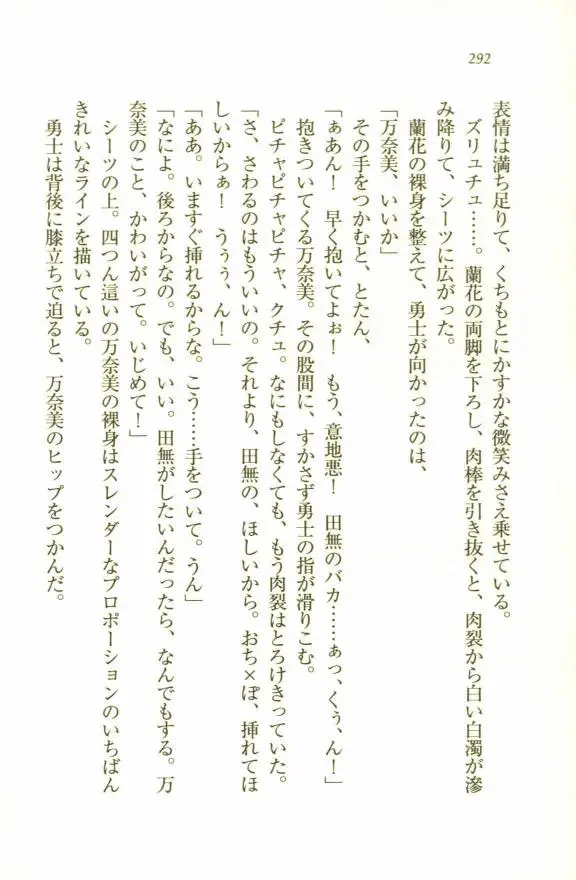 292
表情は満ち足りて、くちもとにかすかな微笑みさえ乗せている。
ズリュチュ……。蘭花の両脚を下ろし、肉棒を引き抜くと、肉裂から白い白濁が滲
み降りて、シーツに広がった。
蘭花の裸身を整えて、勇士が向かったのは、
「万奈美、いいか」
その手をつかむと、とたん、
「ぁあん！　早く抱いてよぉ！　もう、意地悪！　田無のバカ……ぁっ、くぅ、ん！」
抱きついてくる万奈美。その股間に、すかさず勇士の指が滑りこむ。
ピチャピチャピチャ、クチュ。なにもしなくても、もう肉裂はとろけきっていた。
「さ、さわるのはもういいの。それより、田無の、ほしいから。おち×ぽ、挿れてほ
しいからぁ！　うぅぅ、ん！」
「ああ。いますぐ挿れるからな。こう……手をついて。うん」
「なによ。後ろからなの。でも、いい。田無がしたいんだったら、なんでもする。万
奈美のこと、かわいがって。いじめて！」
シーツの上。四つん這いの万奈美の裸身はスレンダーなプロポーションのいちばん
きれいなラインを描いている。
勇士は背後に膝立ちで迫ると、万奈美のヒップをつかんだ。